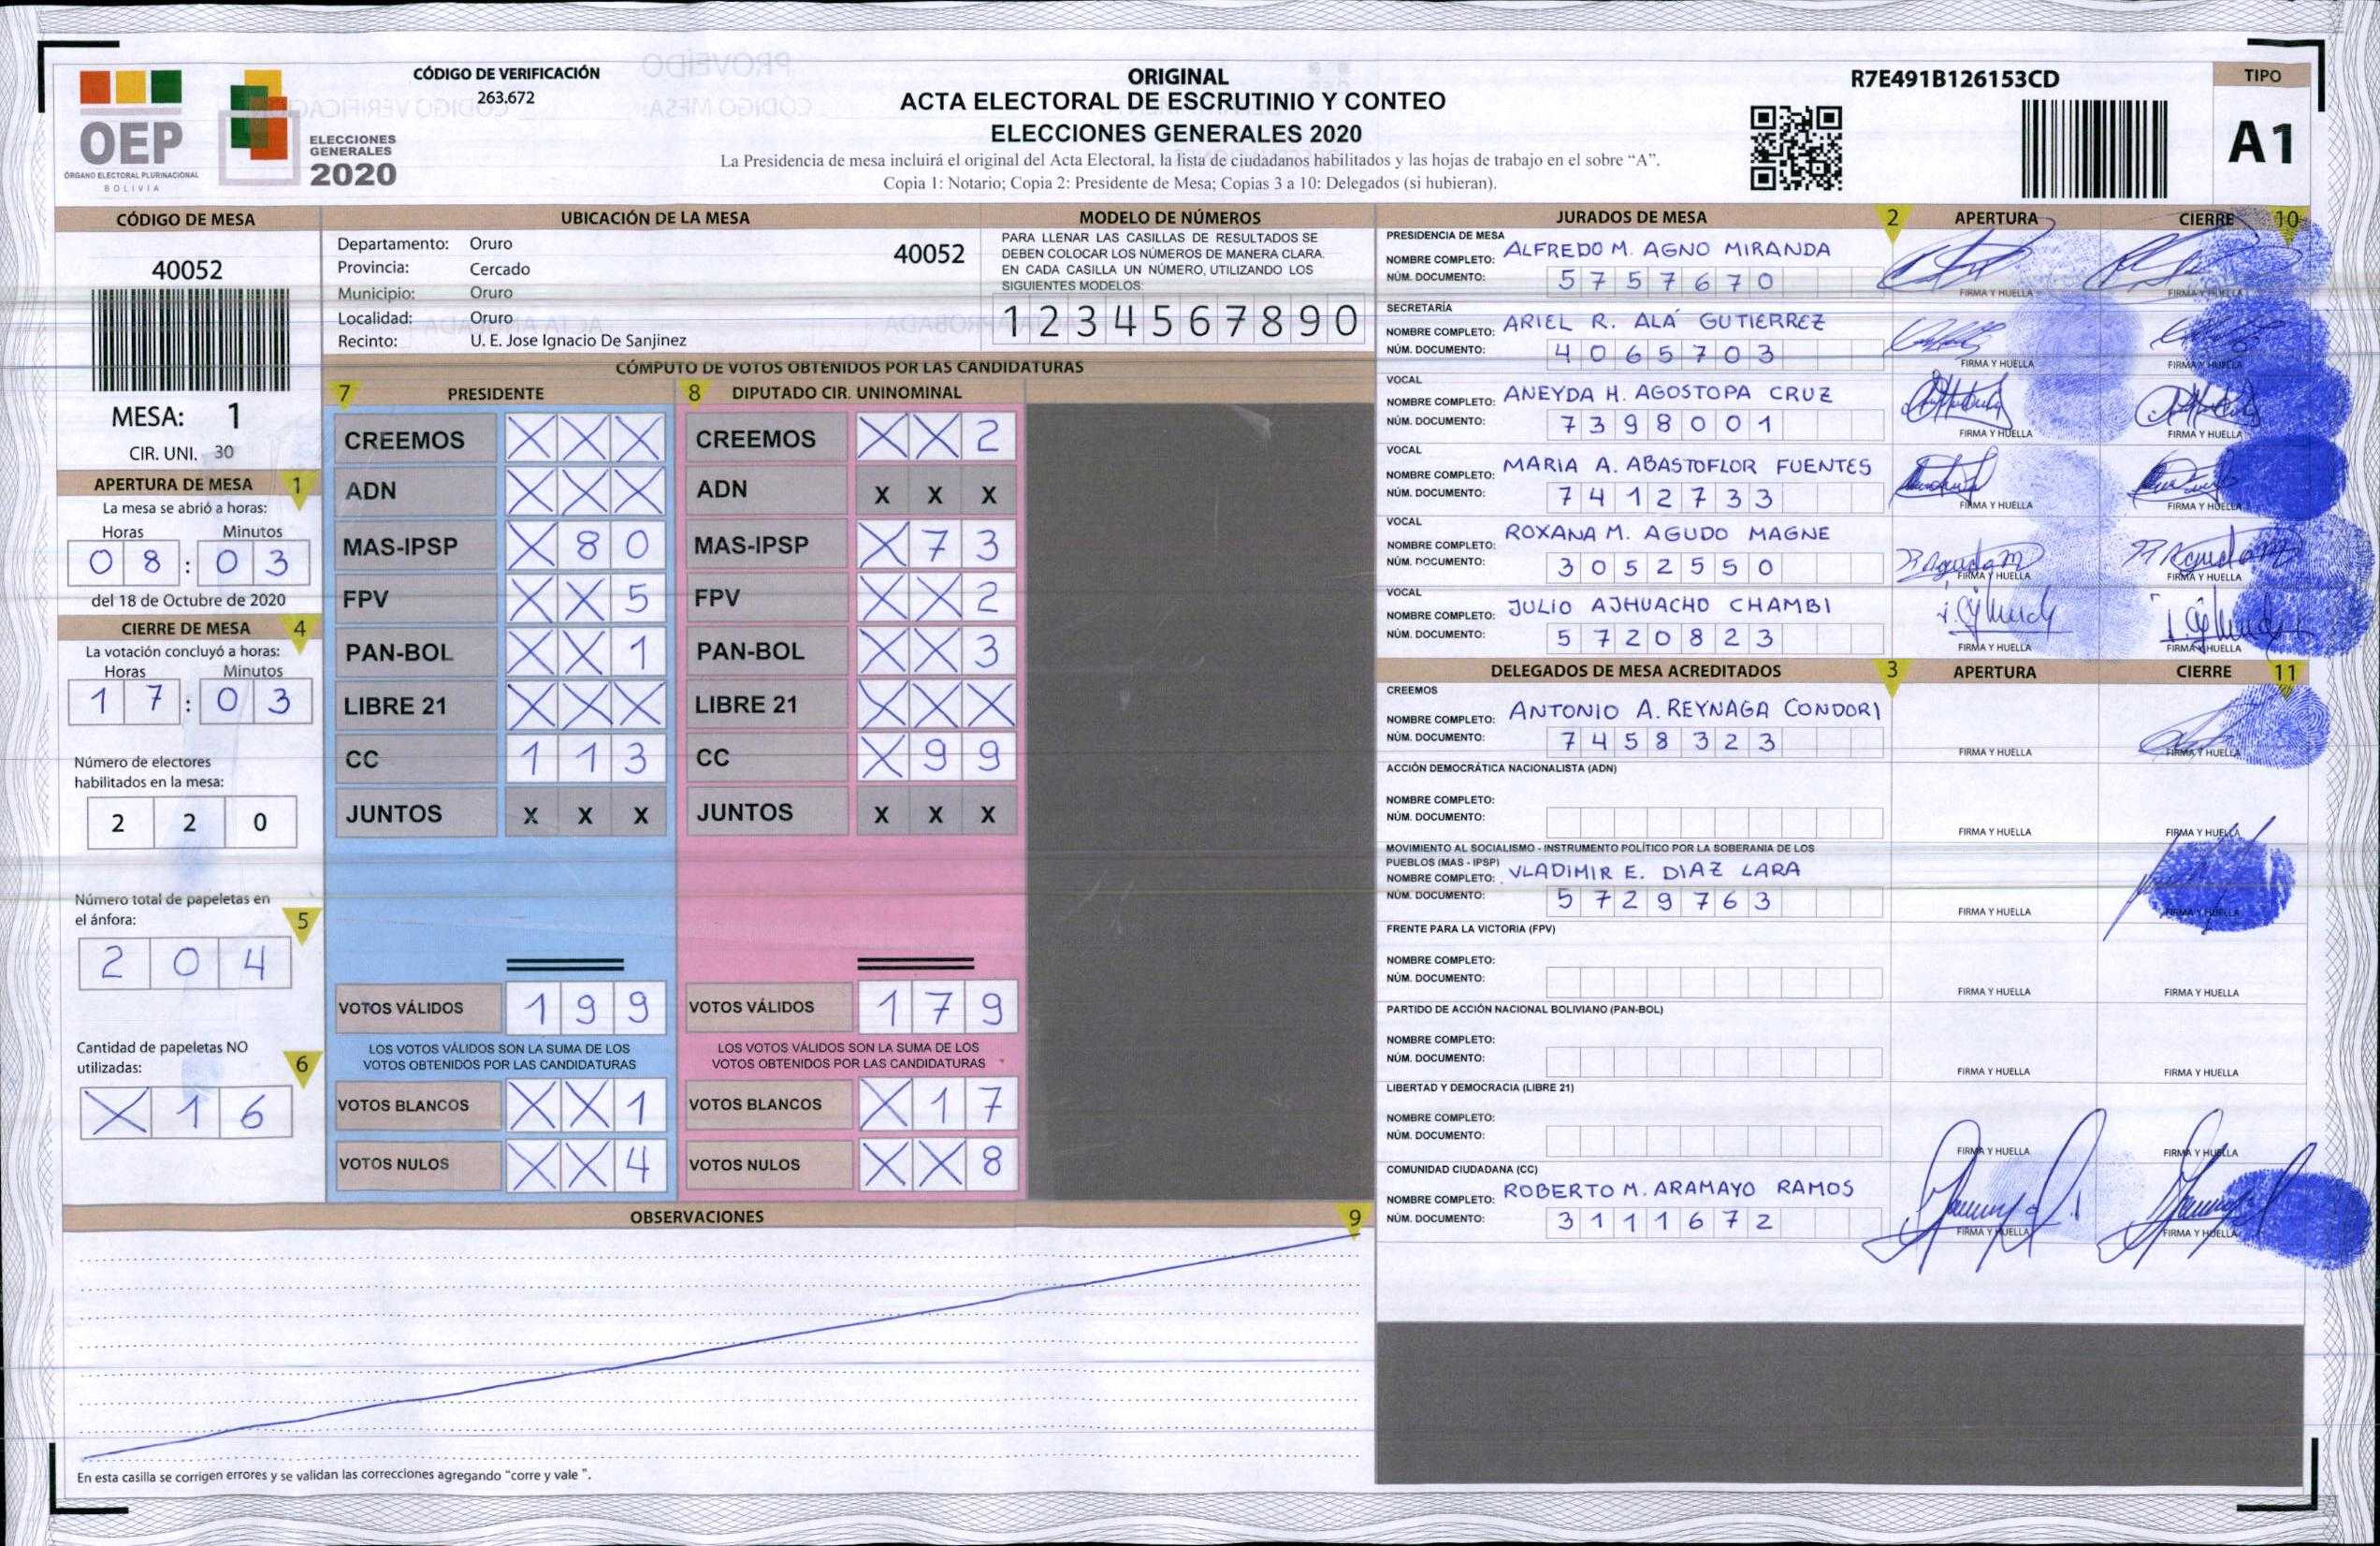 OEP
ÓRGANO ELECTORAL PLURINACIONAL
BOLIVIA
ELECCIONES
GENERALES
2020
CÓDIGO DE VERIFICACIÓN
263.672
ORIGINAL
ACTA ELECTORAL DE ESCRUTINIO Y CONTEO
ELECCIONES GENERALES 2020
La Presidencia de mesa incluirá el original del Acta Electoral, la lista de ciudadanos habilitados y las hojas de trabajo en el sobre “A”.
Copia 1: Notario; Copia 2: Presidente de Mesa; Copias 3 a 10: Delegados (si hubieran).
R7E491B126153CD
TIPO
A1
CÓDIGO DE MESA
40052
MESA: 1
CIR. UNI. 30
APERTURA DE MESA 1
La mesa se abrió a horas:
Horas Minutos
08:03
del 18 de Octubre de 2020
CIERRE DE MESA 4
La votación concluyó a horas:
Horas Minutos
17:03
Número de electores
habilitados en la mesa:
2 2 0
Número total de papeletas en
el ánfora: 5
2 0 4
Cantidad de papeletas NO
utilizadas: 6
X 1 6
UBICACIÓN DE LA MESA
Departamento: Oruro 40052
Provincia: Cercado
Municipio: Oruro
Localidad: Oruro
Recinto: U. E. Jose Ignacio De Sanjinez
MODELO DE NÚMEROS
PARA LLENAR LAS CASILLAS DE RESULTADOS SE
DEBEN COLOCAR LOS NÚMEROS DE MANERA CLARA.
EN CADA CASILLA UN NÚMERO, UTILIZANDO LOS
SIGUIENTES MODELOS:
1 2 3 4 5 6 7 8 9 0
CÓMPUTO DE VOTOS OBTENIDOS POR LAS CANDIDATURAS
7 PRESIDENTE
CREEMOS X X X
ADN X X X
MAS-IPSP X 8 0
FPV X X 5
PAN-BOL X X 1
LIBRE 21 X X X
CC 1 1 3
JUNTOS X X X
VOTOS VÁLIDOS 1 9 9
LOS VOTOS VÁLIDOS SON LA SUMA DE LOS
VOTOS OBTENIDOS POR LAS CANDIDATURAS
VOTOS BLANCOS X X 1
VOTOS NULOS X X 4
8 DIPUTADO CIR. UNINOMINAL
CREEMOS X X 2
ADN X X X
MAS-IPSP X 7 3
FPV X X 2
PAN-BOL X X 3
LIBRE 21 X X X
CC X 9 9
JUNTOS X X X
VOTOS VÁLIDOS 1 7 9
LOS VOTOS VÁLIDOS SON LA SUMA DE LOS
VOTOS OBTENIDOS POR LAS CANDIDATURAS
VOTOS BLANCOS X 1 7
VOTOS NULOS X X 8
OBSERVACIONES 9
En esta casilla se corrigen errores y se validan las correcciones agregando “corre y vale ”.
JURADOS DE MESA 2 APERTURA CIERRE 10
PRESIDENCIA DE MESA
NOMBRE COMPLETO: ALFREDO M. AGNO MIRANDA
NÚM. DOCUMENTO: 5757670
FIRMA Y HUELLA FIRMA Y HUELLA
SECRETARÍA
NOMBRE COMPLETO: ARIEL R. ALÁ GUTIERREZ
NÚM. DOCUMENTO: 4065703
FIRMA Y HUELLA FIRMA Y HUELLA
VOCAL
NOMBRE COMPLETO: ANEYDA H. AGOSTOPA CRUZ
NÚM. DOCUMENTO: 7398001
FIRMA Y HUELLA FIRMA Y HUELLA
VOCAL
NOMBRE COMPLETO: MARIA A. ABASTOFLOR FUENTES
NÚM. DOCUMENTO: 7412733
FIRMA Y HUELLA FIRMA Y HUELLA
VOCAL
NOMBRE COMPLETO: ROXANA M. AGUDO MAGNE
NÚM. DOCUMENTO: 3052550
FIRMA Y HUELLA FIRMA Y HUELLA
VOCAL
NOMBRE COMPLETO: JULIO AJHUACHO CHAMBI
NÚM. DOCUMENTO: 5720823
FIRMA Y HUELLA FIRMA Y HUELLA
DELEGADOS DE MESA ACREDITADOS 3 APERTURA CIERRE 11
CREEMOS
NOMBRE COMPLETO: ANTONIO A. REYNAGA CONDORI
NÚM. DOCUMENTO: 7458323
FIRMA Y HUELLA FIRMA Y HUELLA
ACCIÓN DEMOCRÁTICA NACIONALISTA (ADN)
NOMBRE COMPLETO:
NÚM. DOCUMENTO:
FIRMA Y HUELLA FIRMA Y HUELLA
MOVIMIENTO AL SOCIALISMO - INSTRUMENTO POLÍTICO POR LA SOBERANIA DE LOS
PUEBLOS (MAS - IPSP)
NOMBRE COMPLETO: VLADIMIR E. DIAZ LARA
NÚM. DOCUMENTO: 5729763
FIRMA Y HUELLA FIRMA Y HUELLA
FRENTE PARA LA VICTORIA (FPV)
NOMBRE COMPLETO:
NÚM. DOCUMENTO:
FIRMA Y HUELLA FIRMA Y HUELLA
PARTIDO DE ACCIÓN NACIONAL BOLIVIANO (PAN-BOL)
NOMBRE COMPLETO:
NÚM. DOCUMENTO:
FIRMA Y HUELLA FIRMA Y HUELLA
LIBERTAD Y DEMOCRACIA (LIBRE 21)
NOMBRE COMPLETO:
NÚM. DOCUMENTO:
FIRMA Y HUELLA FIRMA Y HUELLA
COMUNIDAD CIUDADANA (CC)
NOMBRE COMPLETO: ROBERTO M. ARAMAYO RAMOS
NÚM. DOCUMENTO: 3111672
FIRMA Y HUELLA FIRMA Y HUELLA